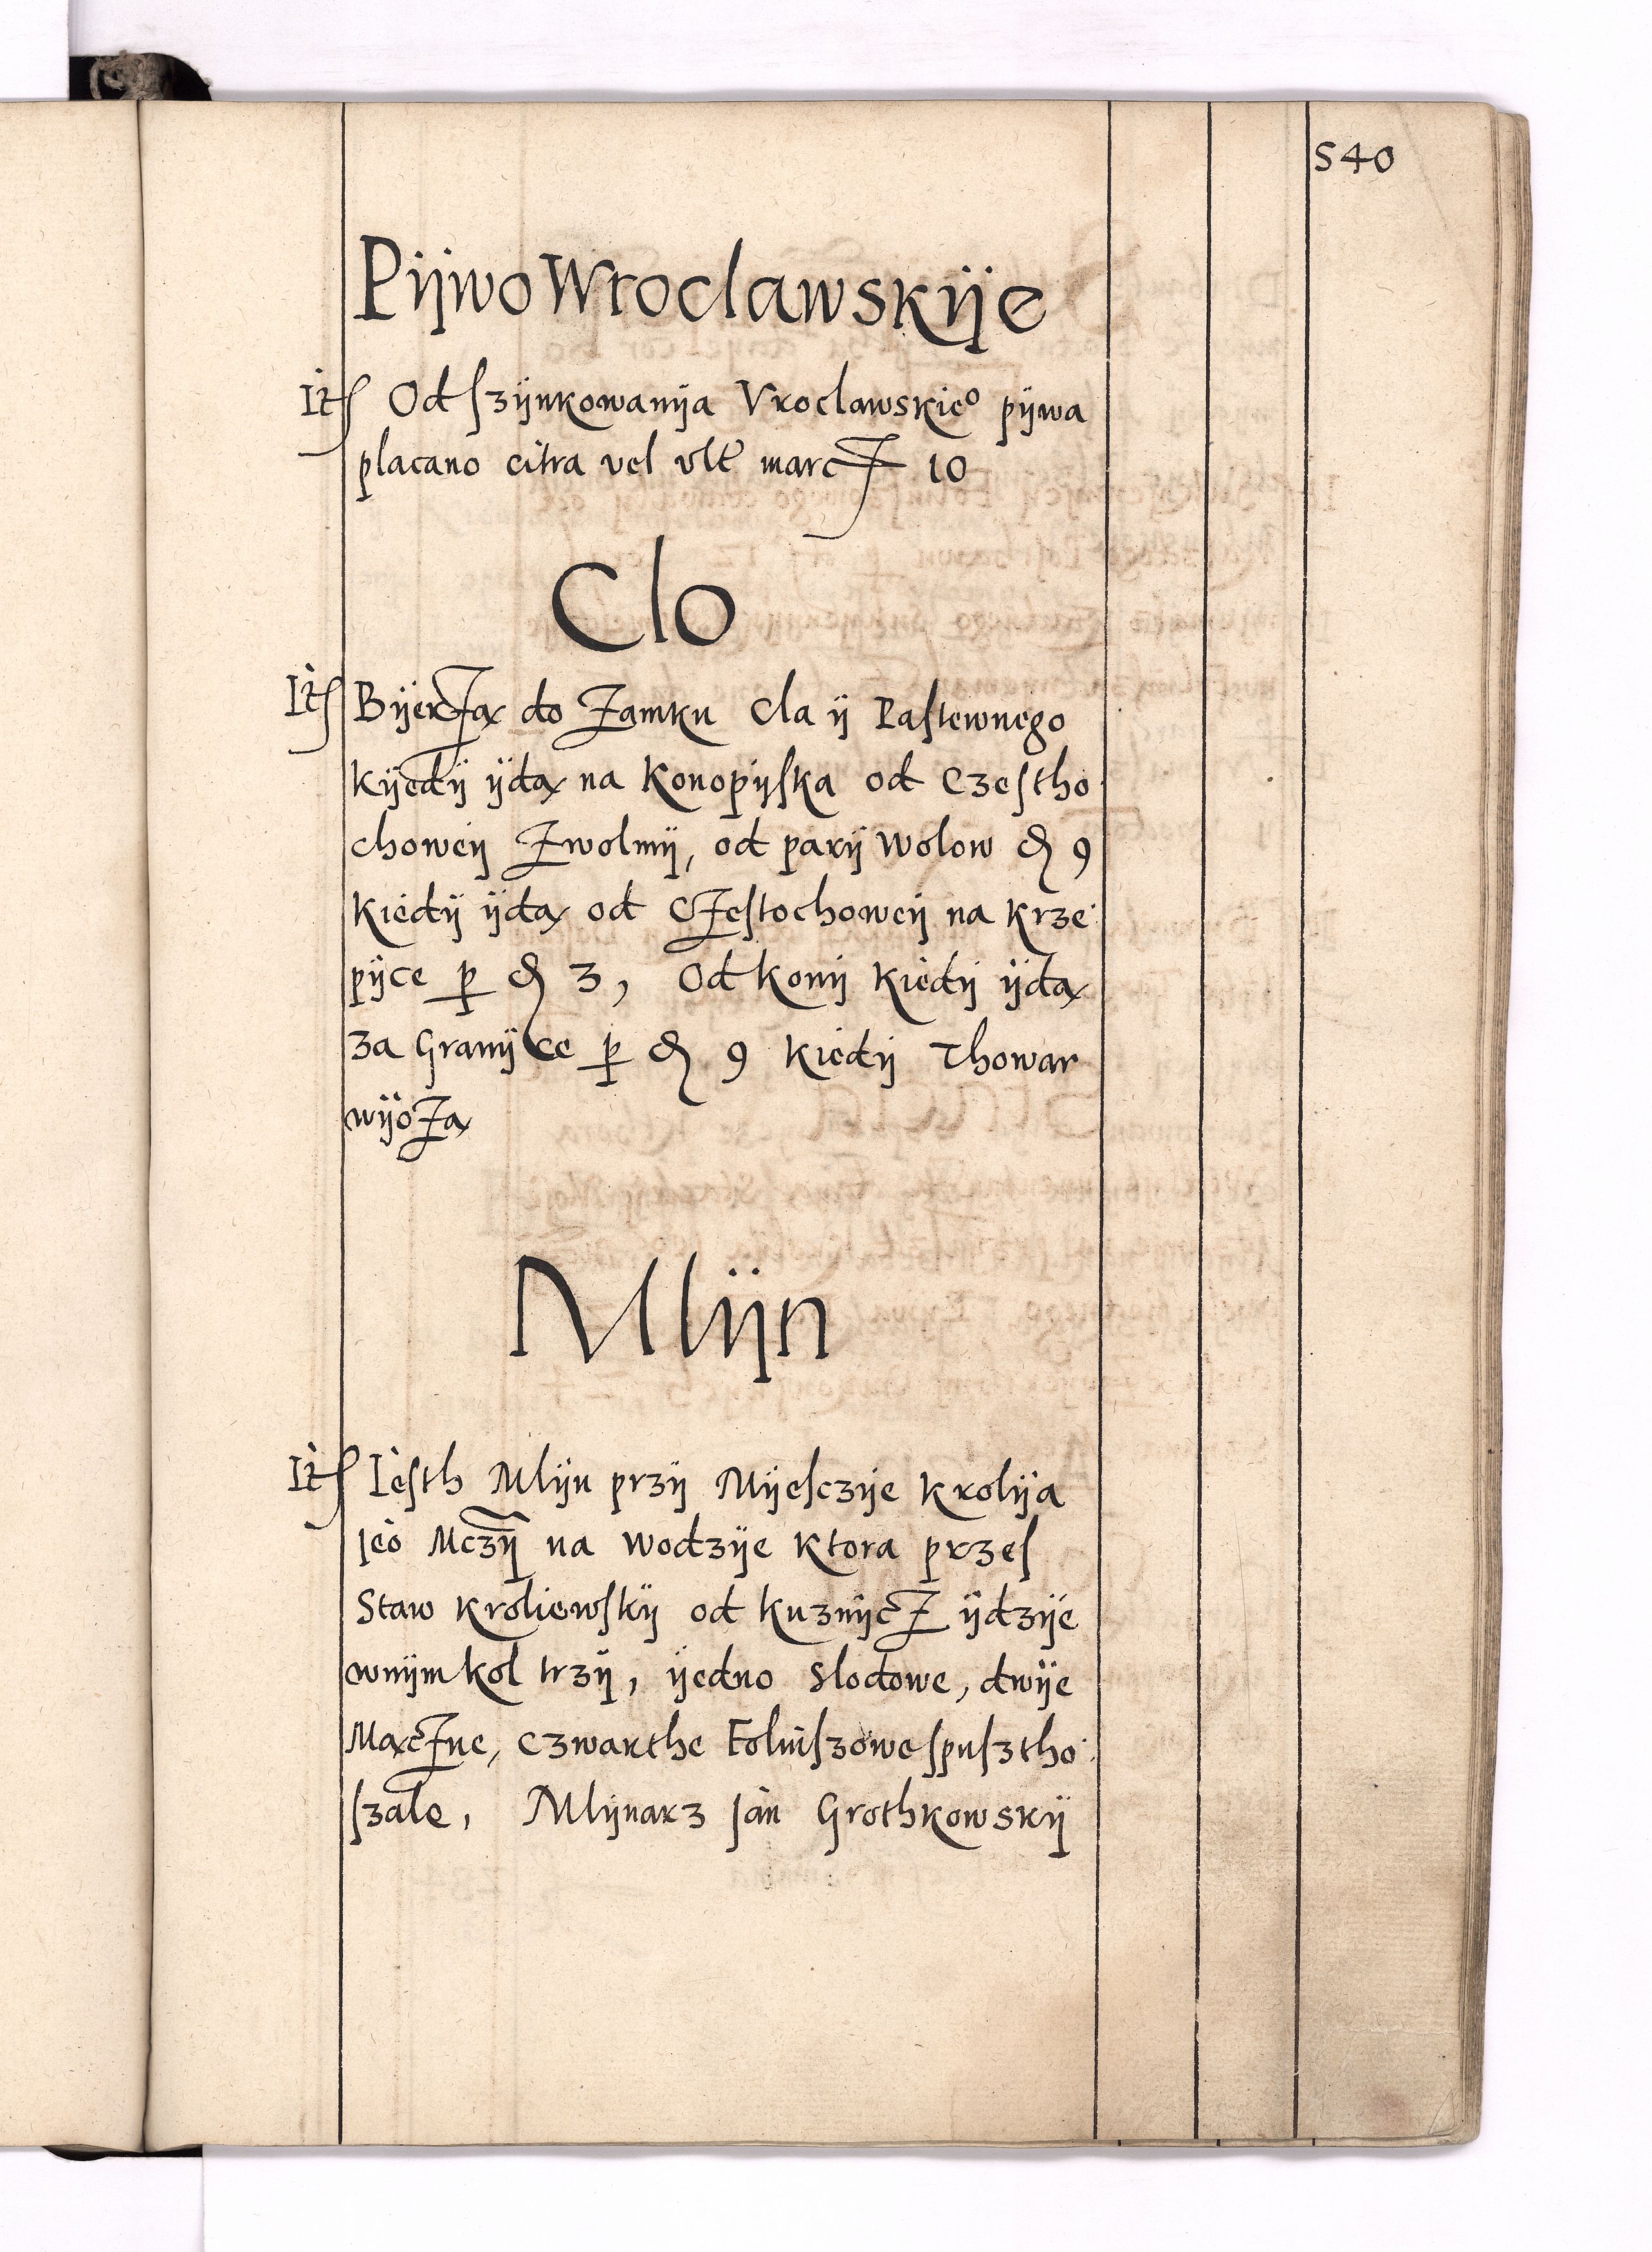 540
Pijwo Wroclawskije
It Od szijnkowanija Vroclawskieo pijwa
placano citra vel vlt marcz 10
Clo
It Bijerzą do Zamku Cla ij Pastewnego
kijedij ijdą na Konopijska od Czestho
choweij Zwolmij, od parij Wolow đ 9
Kiedij ijdą od Czestochoweij na Krze
pijce p đ 3, Od konij Kiedij ijdą
za Granijce p đ 9 Kiedij Thowar
wijozą
Mlijn
It Iesth Mlijn przij Mijesczije Krolija
jeo Mczij na Wodzije Ktora przes
Staw Kroliewskij od kuznijcz ijdzije
wnijm kol trzij, ijedno Slodowe, dwije
Mączne, Czwarthe Folvszowe spusztho
szale, Mlijnarz Jan Grothkowskij